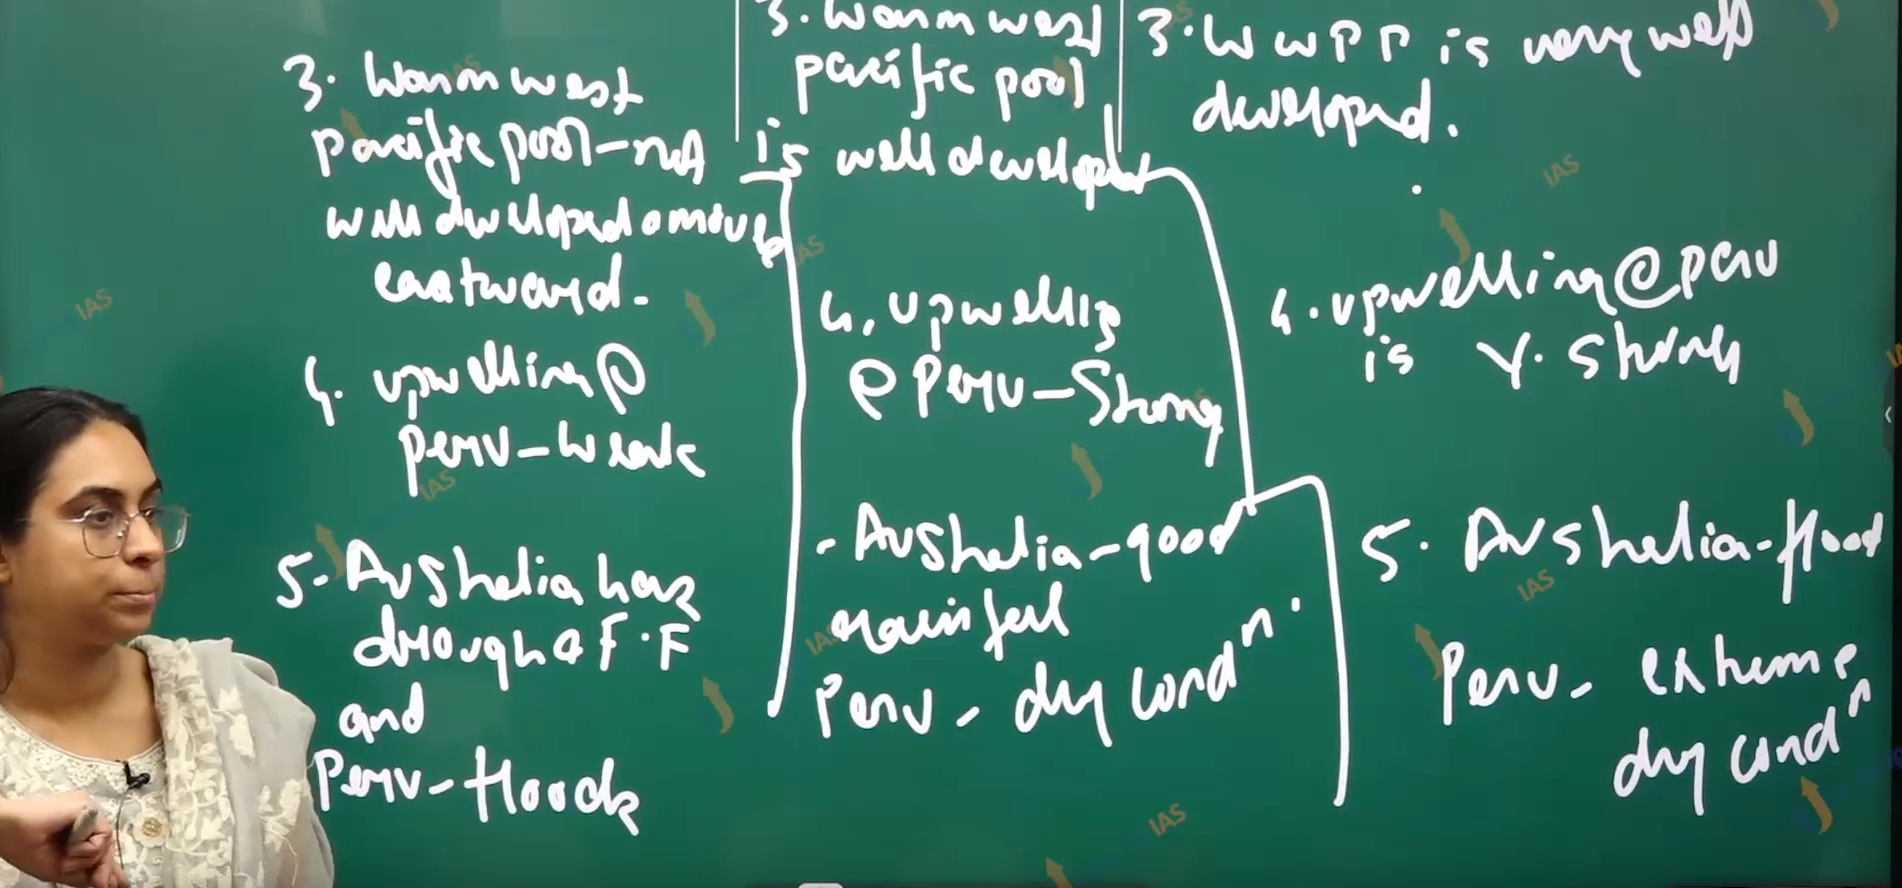 3. Warm west
pacific pool - not
well developed & moves
eastward.
4. upwelling @
peru - weak
5. Australia has
drought & F.F
and
Peru - floods
3. Warm west
pacific pool
is well developed
4. upwelling
@ Peru - Strong
- Australia - good
rainfall
Peru - dry condⁿ.
3. W W P P is very well
developed.
4. upwelling @ peru
is V. Strong
5. Australia - flood
Peru - extreme
dry condⁿ
IAS
IAS
IAS
IAS
IAS
IAS
IAS
IAS
IAS